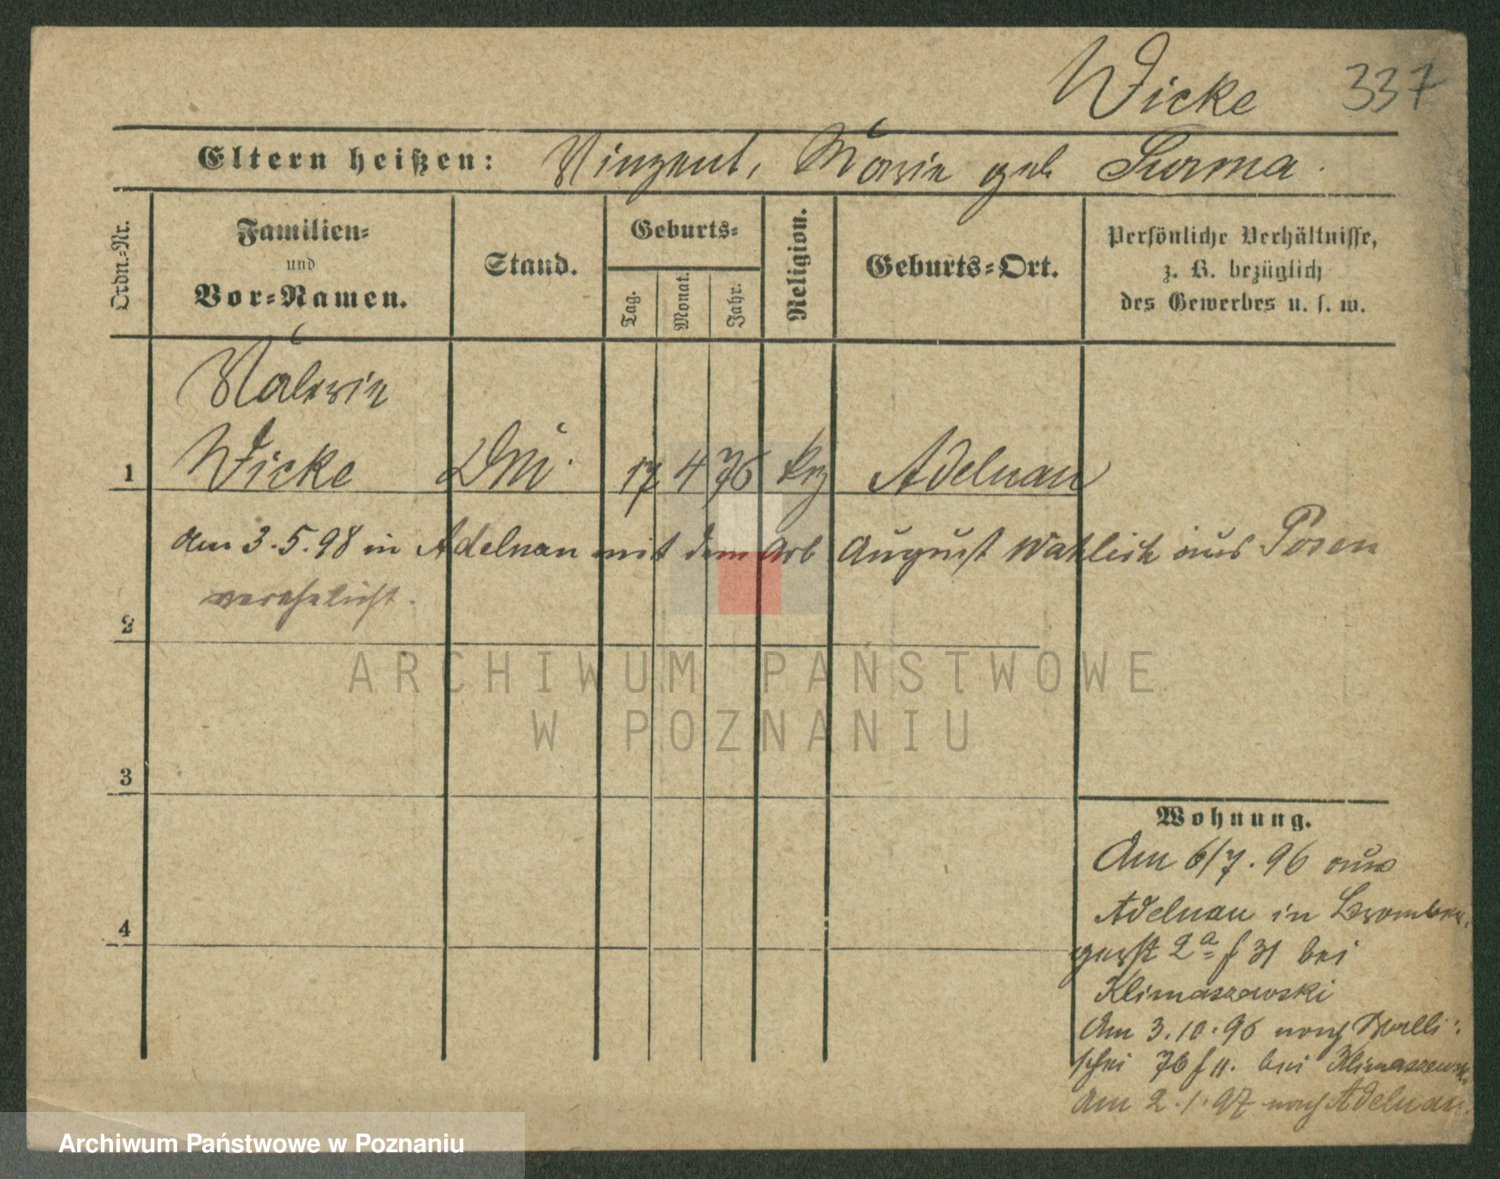 Wicke 337
Eltern heißen: Vinzent, Marie geb Surma.
Ordn.-Nr.
Familien- und Vor-Namen.
Stand.
Geburts-
Tag. Monat. Jahr.
Religion.
Geburts-Ort.
Persönliche Verhältnisse,
z. B. bezüglich
des Gewerbes u. s. w.
Valerie
1 Wicke 17 4 76 Adelnau
Am 3.5.98 in Adelnau mit dem Arb August aus Posen
verehelicht.
2
3
4
Wohnung.
Am 6/7.96 aus
Adelnau in Bromber-
gerst 2a f 31 bei
Klimaszewski
Am 3.10.96 nach Walli-
schei 76 f II. bei Klimaszewski
Am 2.1.97 nach Adelnau.
ARCHIWUM PAŃSTWOWE
W POZNANIU
Archiwum Państwowe w Poznaniu